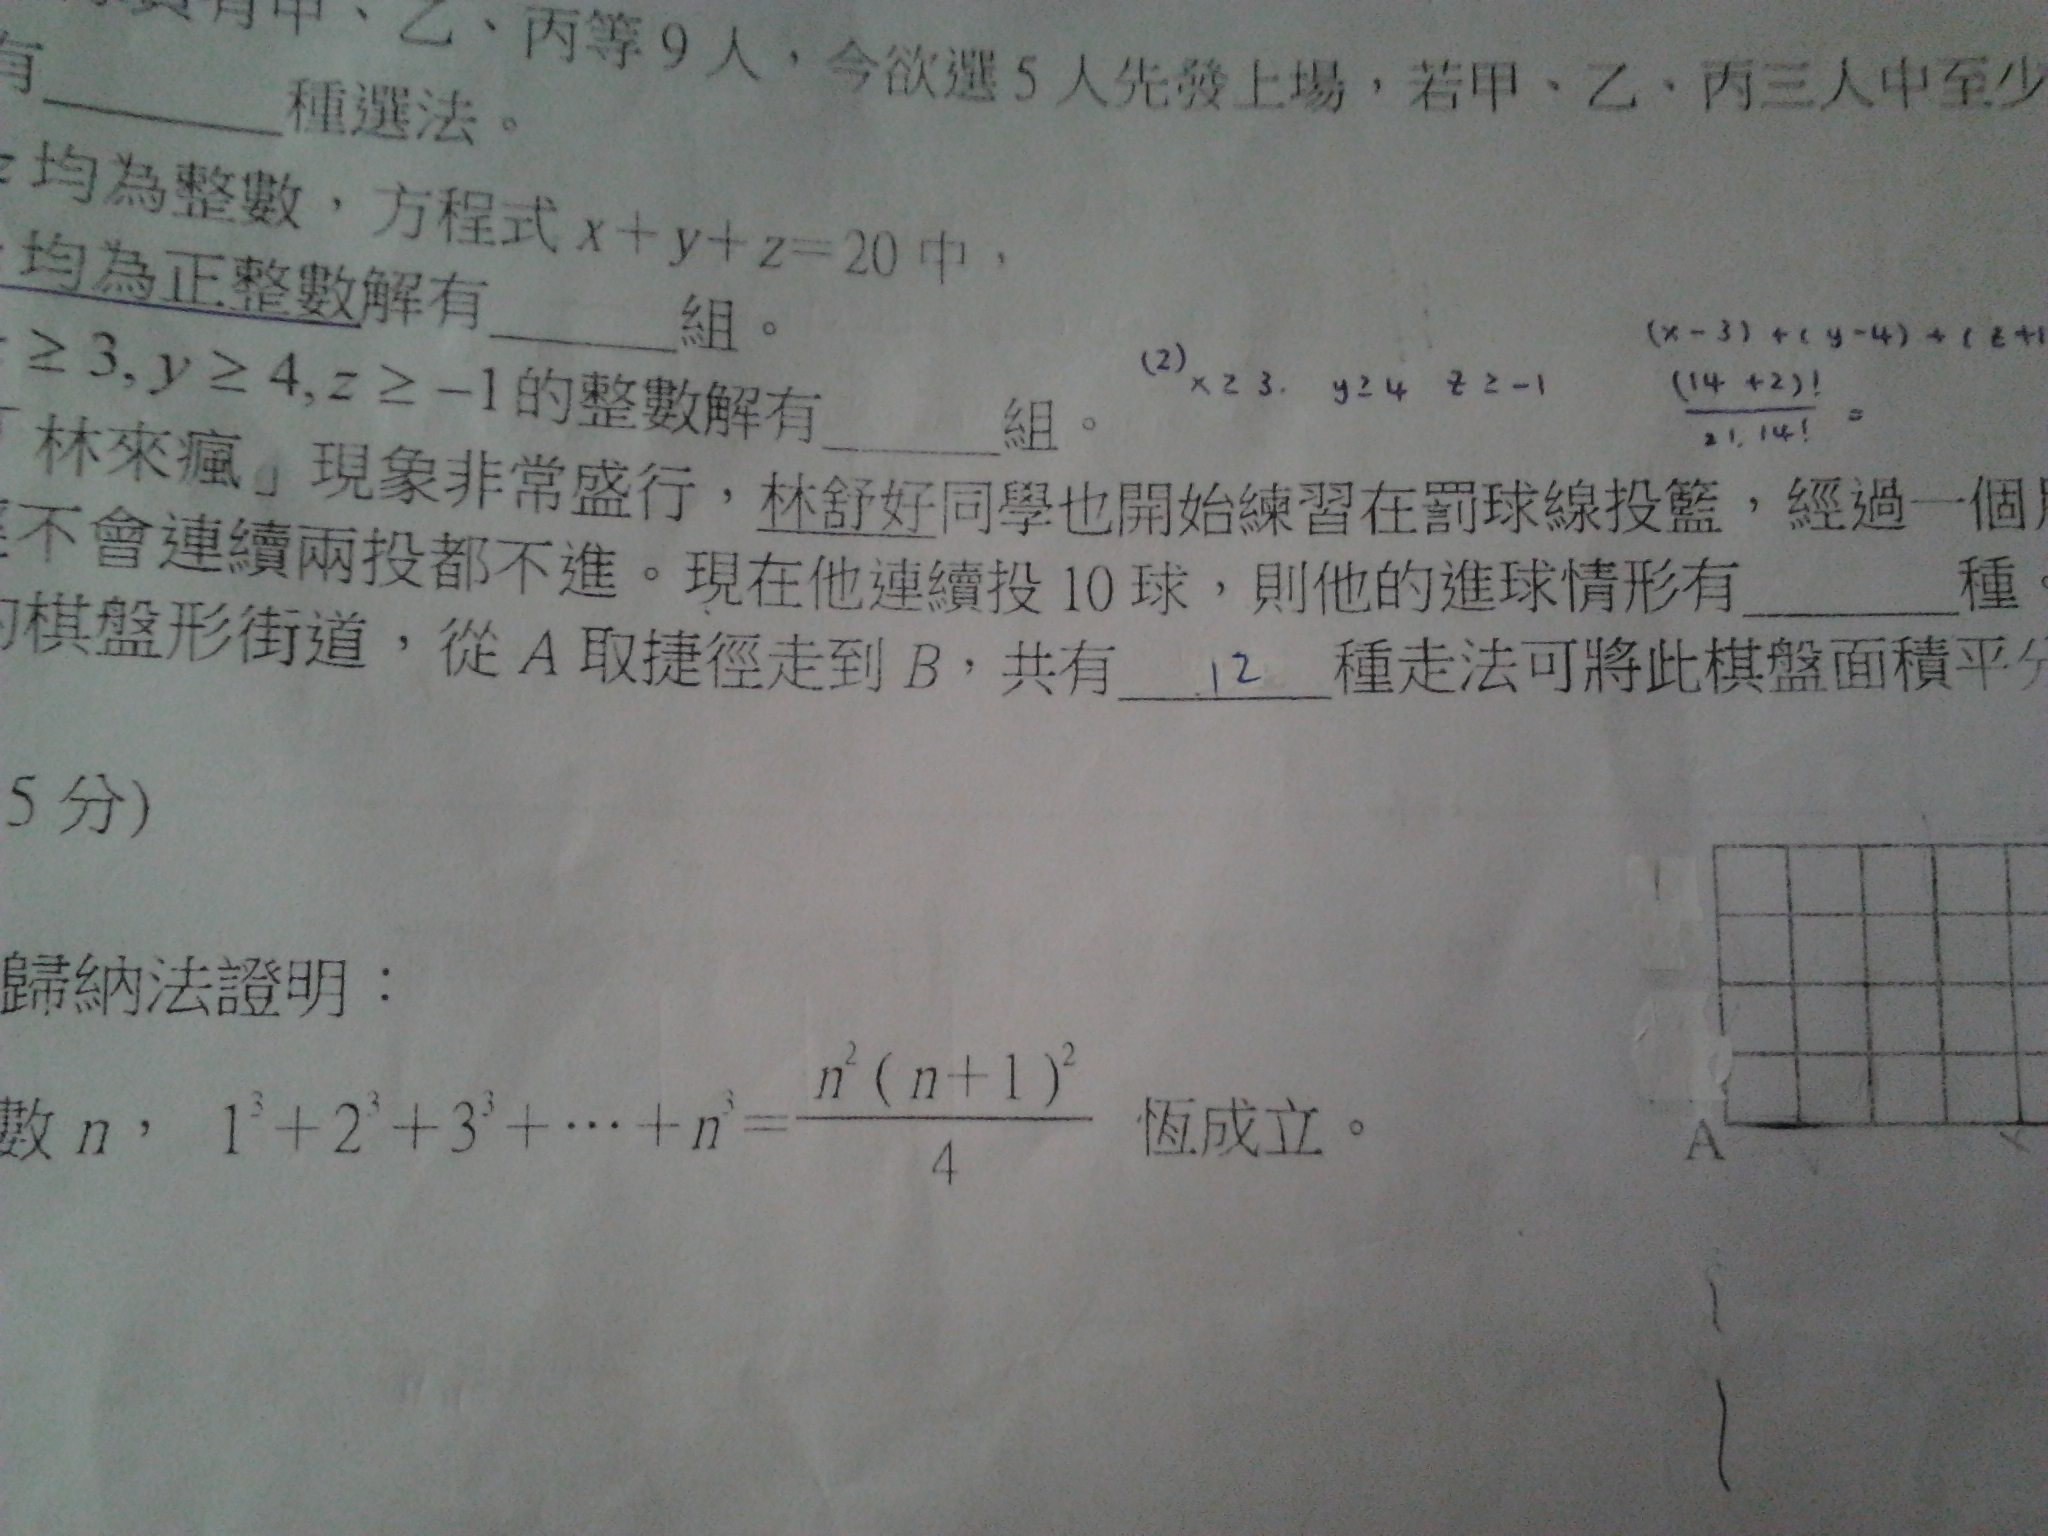 有甲、乙、丙等9人，今欲選5人先發上場，若甲、乙、丙三人中至少
有______種選法。
z均為整數，方程式 x+y+z=20 中，
均為正整數解有______組。
(x-3)+(y-4)+(z+1
≥3, y≥4, z≥-1的整數解有______組。
(2) x≥3. y≥4 z≥-1
(14+2)!
2!.14! =
「林來瘋」現象非常盛行，林舒好同學也開始練習在罰球線投籃，經過一個
不會連續兩投都不進。現在他連續投10球，則他的進球情形有______種。
的棋盤形街道，從A取捷徑走到B，共有 12 種走法可將此棋盤面積平分
5分)
歸納法證明：
數n， 1³+2³+3³+…+n³= n²(n+1)² / 4 恆成立。
A